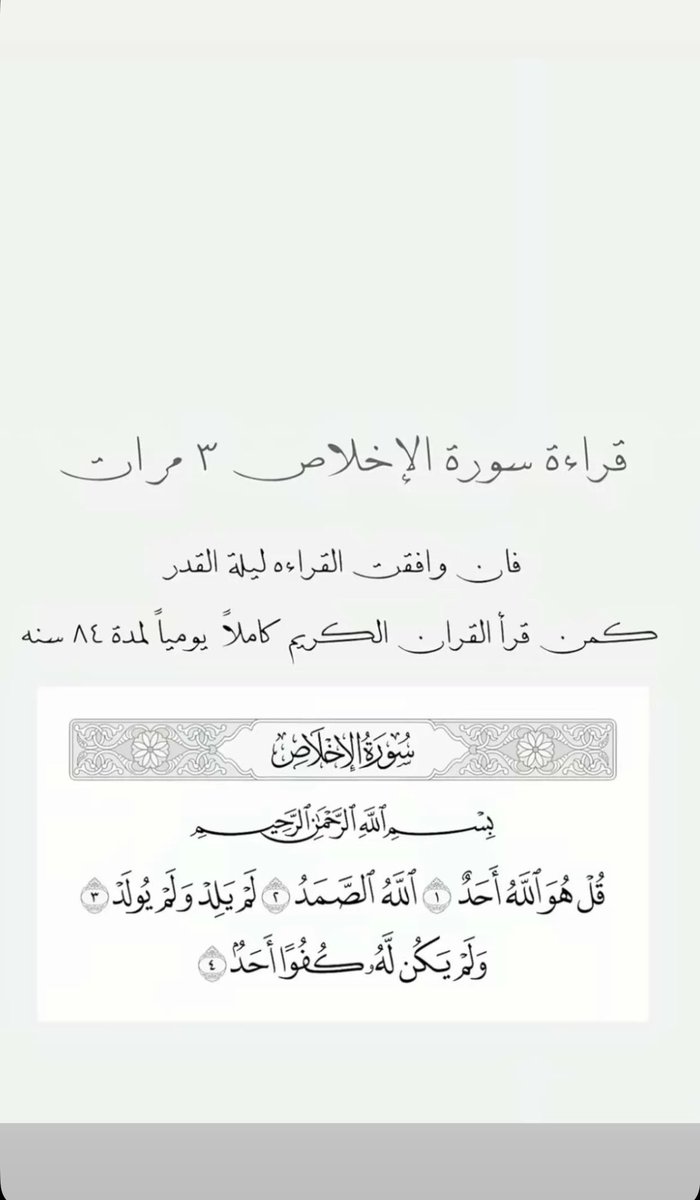 قراءة سورة الإخلاص ٣ مرات
فان وافقت القراءه ليلة القدر
كمن قرأ القران الكريم كاملاً يومياً لمدة ٨٤ سنه
سُورَةُ الإِخْلَاصِ
بِسْمِ ٱللَّهِ ٱلرَّحْمَٰنِ ٱلرَّحِيمِ
قُلْ هُوَ ٱللَّهُ أَحَدٌ ١ ٱللَّهُ ٱلصَّمَدُ ٢ لَمْ يَلِدْ وَلَمْ يُولَدْ ٣
وَلَمْ يَكُن لَّهُۥ كُفُوًا أَحَدٌۢ ٤